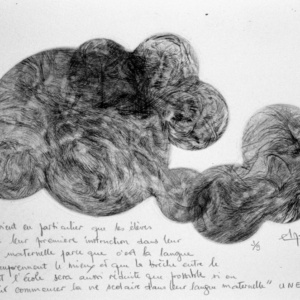 en particulier que les élèves
leur première instruction dans leur
maternelle parce que c'est la langue
comprennent le mieux et que la brèche entre le
et l'école sera aussi réduite que possible si on
commencer la vie scolaire dans leur langue maternelle" UNE